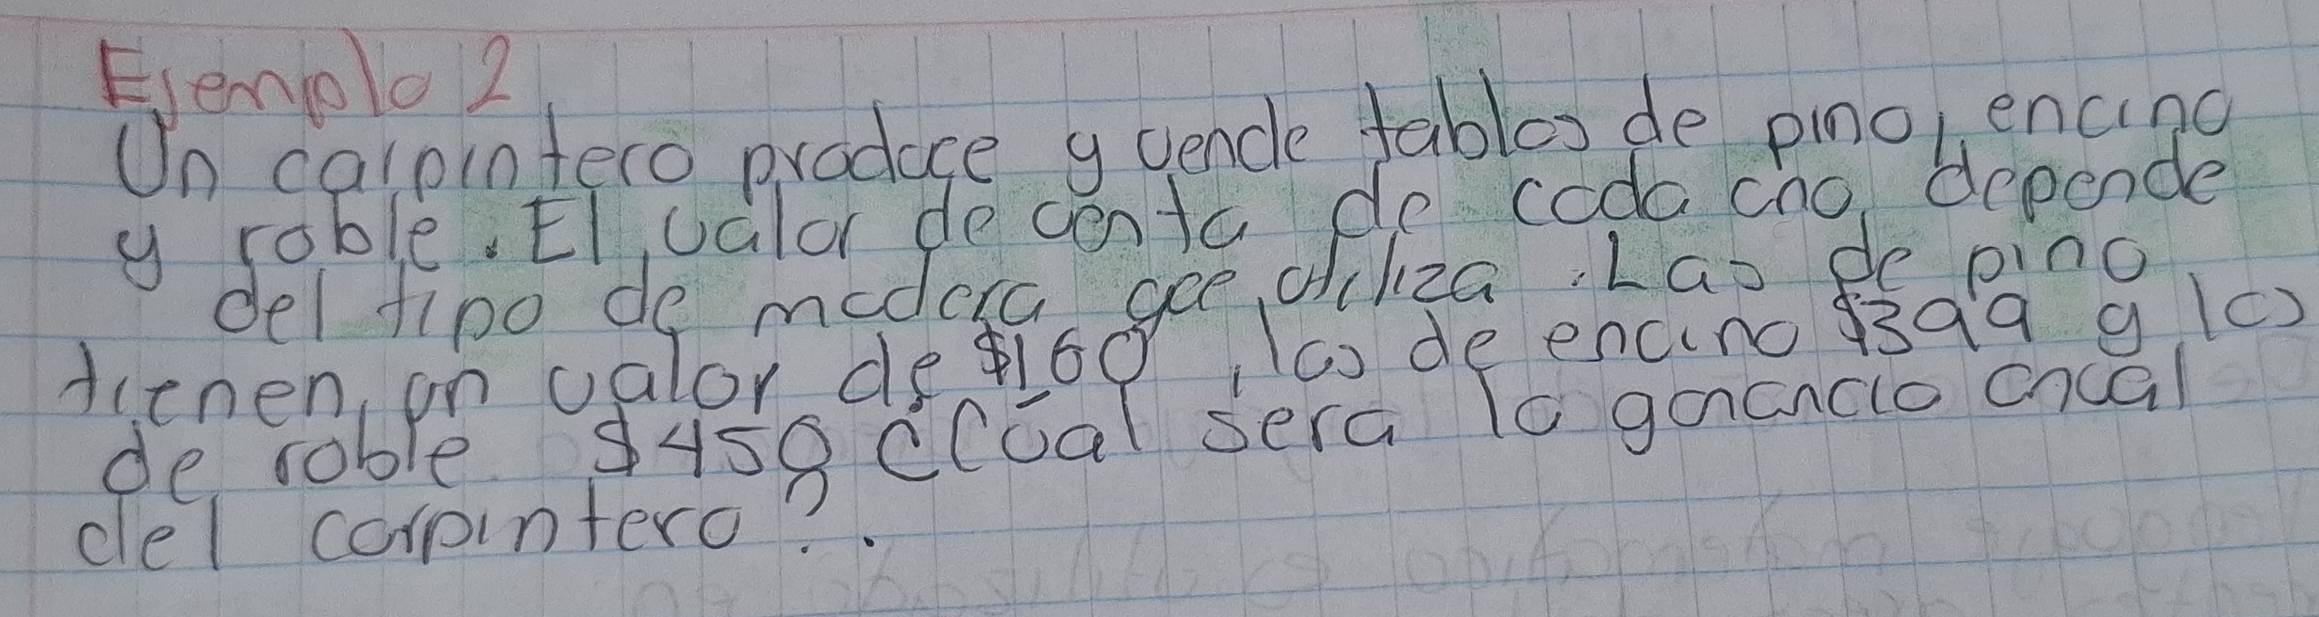 Ejemplo 2
Un carpintero produce y vende tablas de pino, encino
y roble. El valor de venta de cada uno, depende
del tipo de madera que utiliza. Las de pino
tienen un valor de $160, las de encino $399 y las
de roble $458 ¿Cual sera la ganancia anual
del carpintero?.